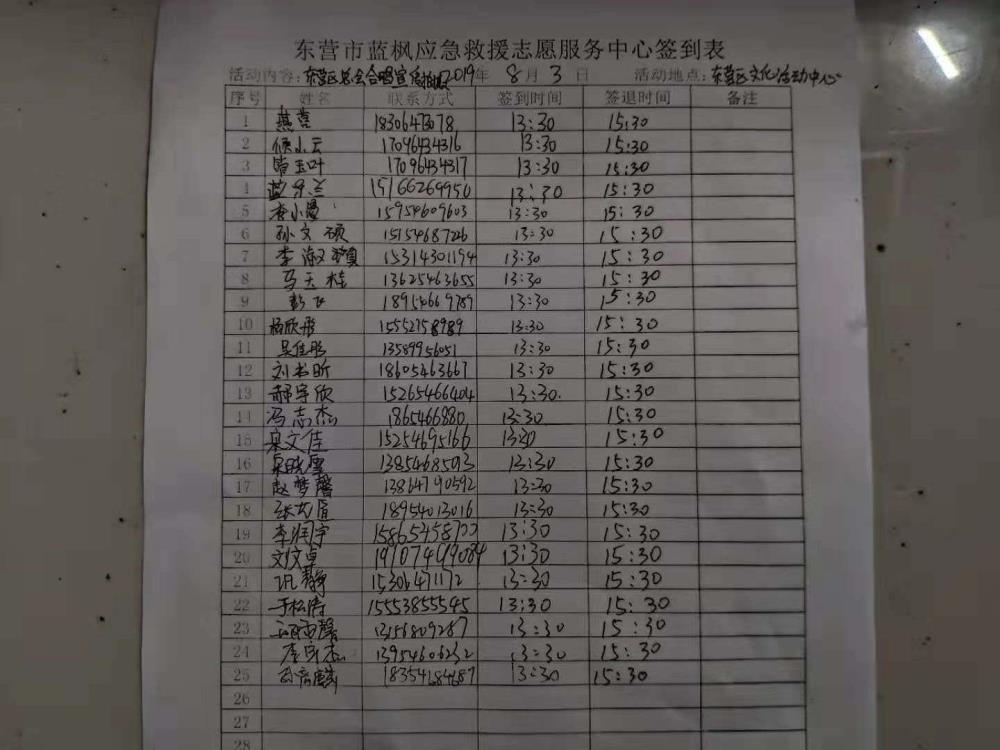 东营市蓝枫应急救援志愿服务中心签到表
活动内容：东营区总会合唱宣传拍摄2019年 8月 3日 活动地点：东营区文化活动中心
序号 姓名 联系方式 签到时间 签退时间 备注
1 燕喜 18306473078 13:30 15:30
2 倾小云 17096434316 13:30 15:30
3 玉叶 17096434317 13:30 15:30
4 15166269950 13:30 15:30
5 李小曼 15954609603 13:30 15:30
6 孙文硕 15154687226 13:30 15:30
7 李淑颖 15314301194 13:30 15:30
8 马玉桂 13625463655 13:30 15:30
9 彭飞 18954669789 13:30 15:30
10 杨欣彤 15552758989 13:30 15:30
11 吴佳彤 13589956051 13:30 15:30
12 刘书昕 18605463667 13:30 15:30
13 郝宇欣 15265466404 13:30 15:30
14 冯志杰 1865466880 13:30 15:30
15 宋文佳 15254695166 13:30 15:30
16 宋晓雪 1385468503 13:30 15:30
17 赵梦馨 13864790592 13:30 15:30
18 18954013016 13:30 15:30
19 李润宇 15865458700 13:30 15:30
20 刘文卓 19107419084 13:30 15:30
21 巩静 15306471172 13:30 15:30
22 于松涛 15553855545 13:30 15:30
23 13156809287 13:30 15:30
24 13954606232 13:30 15:30
25 18354184687 13:30 15:30
26
27
28